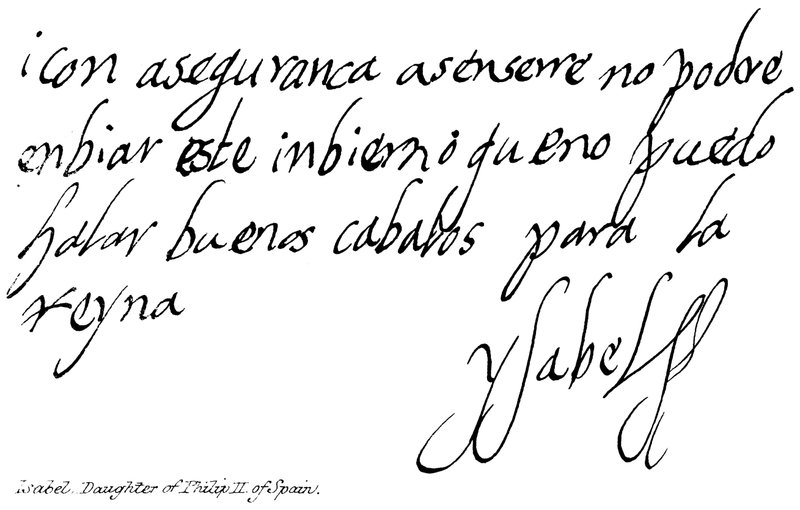 icon aseguranca asenserre no podre
enbiar este inbierno queno puedo
halar buenos cabalos para la
reyna
ysabel
Isabel, Daughter of Philip II. of Spain.